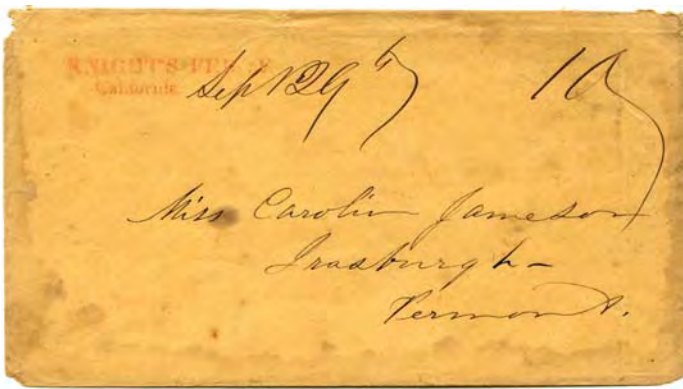 KNIGHT'S FERRY
California.
Sept 29th 10
Miss Carolin Jameson
Irasburgh-
Vermont.